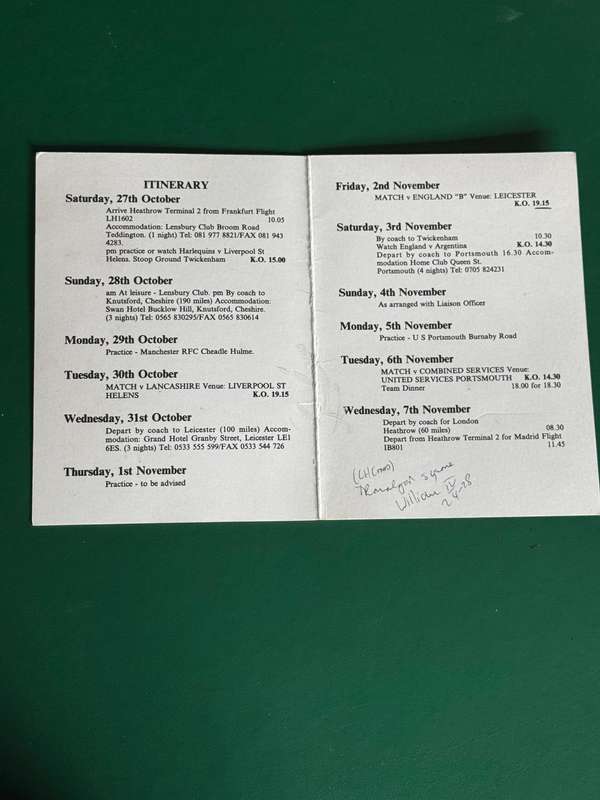 ITINERARY
Saturday, 27th October
Arrive Heathrow Terminal 2 from Frankfurt Flight
LH1602 10.05
Accommodation: Lensbury Club Broom Road
Teddington. (1 night) Tel: 081 977 8821/FAX 081 943
4283.
pm practice or watch Harlequins v Liverpool St
Helens. Stoop Ground Twickenham K.O. 15.00
Sunday, 28th October
am At leisure - Lensbury Club. pm By coach to
Knutsford, Cheshire (190 miles) Accommodation:
Swan Hotel Bucklow Hill, Knutsford, Cheshire.
(3 nights) Tel: 0565 830295/FAX 0565 830614
Monday, 29th October
Practice - Manchester RFC Cheadle Hulme.
Tuesday, 30th October
MATCH v LANCASHIRE Venue: LIVERPOOL ST
HELENS K.O. 19.15
Wednesday, 31st October
Depart by coach to Leicester (100 miles) Accom-
modation: Grand Hotel Granby Street, Leicester LE1
6ES. (3 nights) Tel: 0533 555 599/FAX 0533 544 726
Thursday, 1st November
Practice - to be advised
Friday, 2nd November
MATCH v ENGLAND "B" Venue: LEICESTER
K.O. 19.15
Saturday, 3rd November
By coach to Twickenham 10.30
Watch England v Argentina K.O. 14.30
Depart by coach to Portsmouth 16.30 Accom-
modation Home Club Queen St.
Portsmouth (4 nights) Tel: 0705 824231
Sunday, 4th November
As arranged with Liaison Officer
Monday, 5th November
Practice - U S Portsmouth Burnaby Road
Tuesday, 6th November
MATCH v COMBINED SERVICES Venue:
UNITED SERVICES PORTSMOUTH K.O. 14.30
Team Dinner 18.00 for 18.30
Wednesday, 7th November
Depart by coach for London
Heathrow (60 miles) 08.30
Depart from Heathrow Terminal 2 for Madrid Flight
IB801 11.45
Square
William IV